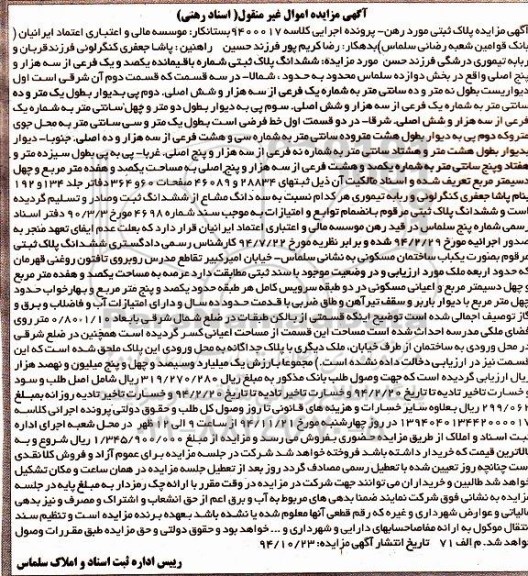 آگهی مزایده اموال غیر منقول( اسناد رهنی)
آگهی مزایده پلاک ثبتی مورد رهن- پرونده اجرایی کلاسه ۹۴۰۰۰۱۷ بستانکار: موسسه مالی و اعتباری اعتماد ایرانیان (
بانک قوامین شعبه رضائی سلماس)بدهکار: رضا کریم پور فرزند حسین راهنین : پاشا جعفری کنگرلوئی فرزند قربان و
ربابه تیموری درشگی فرزند حسن مورد مزایده: ششدانگ پلاک ثبتی شماره باقیمانده یکصد و یک فرعی از سه هزار و
پنج اصلی واقع در بخش دوازده سلماس محدود به حدود : شمالا- در سه قسمت که قسمت دوم آن شرقی است اول
دیواریست بطول نه متر و ده سانتی متر به شماره یک فرعی از سه هزار و شش اصلی. دوم پی بدیوار بطول یک متر و ده
سانتی متر به شماره یک فرعی از سه هزار و شش اصلی. سوم پی به دیوار بطول دو متر و چهل سانتی متر به شماره یک
فرعی از سه هزار و شش اصلی. شرقا- در دو قسمت اول خط فرضی است بطول یک متر و سی سانتی متر به محل جوی
متروکه دوم پی به دیوار بطول هشت متر و ده سانتی متر به شماره سی و هشت فرعی از سه هزار و ده اصلی. جنوبا- دیوار
بدیوار بطول هشت متر و هشتاد سانتی متر به شماره نه فرعی از سه هزار و پنج اصلی. غربا- پی به پی بطول سیزده متر و
هفتاد و پنج سانتی متر به شماره یکصد و هشت فرعی از سه هزار و پنج اصلی به مساحت یکصد و هفده متر مربع و چهل
دسیمتر مربع تعریف شده و اسناد مالکیت آن ذیل ثبتهای ۲۸۸۳۴ و ۴۶۰۸۹ صفحات ۶۰ و ۳۶۴ دفاتر جلد ۱۳۴ و ۱۹۲
بنام پاشا جعفری کنگرلوئی و ربابه تیموری هر کدام نسبت به سه دانگ مشاع از ششدانگ ثبت و صادر و تسلیم گردیده
است و ششدانگ پلاک ثبتی مرقوم بانضمام توابع و امتیازات به موجب سند شماره ۴۶۹۸ مورخ ۹۰/۳/۸ دفتر اسناد
رسمی شماره پنج سلماس در قید رهن موسسه مالی و اعتباری اعتماد ایرانیان قرار دارد که بعلت عدم ایفای تعهد منجر به
صدور اجرائیه مورخ ۹۴/۲/۹ شده و برابر نظریه مورخ ۹۴/۷/۲۲ کارشناس رسمی دادگستری ششدانگ پلاک ثبتی
مرقوم بصورت یکباب ساختمان مسکونی به نشانی سلماس- خیابان امیرکبیر تقاطع مدرس روبروی تافتون روغنی قهرمان
که حدود اربعه ملک مورد ارزیابی و در وضعیت موجود با سند ثبتی مطابقت دارد عرصه به مساحت یکصد و هفده متر مربع
و چهل دسیمتر مربع و اعیانی مسکونی در دو طبقه سرویس کامل هر طبقه حدود یکصد و پنج متر مربع و بهارخواب حدود
چهل متر مربع با دیوار باربر و سقف تیرآهن و طاق ضربی با قدمت حدود سال و دارای امتیازات آب و فاضلاب و برق و
گاز توصیف اجمالی شده است توضیح اینکه قسمتی از بالکن طبقات در ضلع شمال شرقی بابعاد متر روی
فضای ملکی مدرسه احداث شده است مساحت این قسمت از مساحت اعیانی کسر گردیده است همچنین در ضلع شرقی
در محل ورودی به ساختمان از طرف خیابان، ملک دیگری با پلاک جداگانه به محل ورودی این پلاک ملحق شده است که این
قسمت نیز در ارزیابی دخالت داده نشده است.) مجموعا بارزش یک میلیارد و سیصد و چهل و پنج میلیون و نهصد هزار
ریال ارزیابی گردیده است که جهت وصول طلب بانک مذکور به مبلغ ریال ۳۱۹/۲۷۰/۲۸۰ ریال شامل اصل طلب و سود
و خسارت تاخیر تادیه تا تاریخ ۹۴/۲/۲۰ و خسارت تاخیر تادیه تا تاریخ ۹۴/۲/۲۰ و خسارت تاخیر تادیه روزانه بمبلغ
۲۹۹/۰۶۱ ریال بعلاوه سایر خسارات و هزینه های قانونی تا روز وصول کل طلب و حقوق دولتی پرونده اجرائی کلاسه
۱۳۹۴۰۴۰۱۳۴۴۲۰۰۰۰۱۷ در روز چهارشنبه مورخ ۹۴/۱۱/۲۱ از ساعت ۹ الی ۱۲ ظهر در محل شعبه اجرای اداره
ثبت اسناد و املاک از طریق مزایده حضوری بفروش می رسد و مزایده از مبلغ ۱/۳۴۵/۹۰۰/۰۰۰ ریال شروع و به
بالاترین قیمت که خریدار داشته باشد فروخته خواهد شد شرکت در جلسه مزایده برای عموم آزاد و فروش کلا نقدی
است چنانچه روز تعیین شده با تعطیل رسمی مصادف گردد روز بعد از تعطیل جلسه مزایده در همان ساعت و مکان تشکیل
خواهد شد طالبین و خریداران می توانند جهت شرکت در مزایده در وقت مقرر با ارائه چک رمزدار به مبلغ پایه در جلسه
مزایده به نشانی فوق شرکت نمایند ضمنا بدهی های مربوط به آب و برق اعم از حق انشعاب و اشتراک و مصرف و نیز بدهی
مالیاتی و عوارض شهرداری و غیره که رقم قطعی آنها معلوم شده یا نشده باشد بعهده برنده مزایده است و تنظیم سند
انتقال موکول به ارائه مفاصاحسابهای دارایی و شهرداری و ... خواهد بود و حقوق دولتی و حق مزایده طبق مقررات وصول
خواهد شد. م الف ۷۱ تاریخ انتشار آگهی مزایده: ۹۴/۱۰/۲۳
رییس اداره ثبت اسناد و املاک سلماس